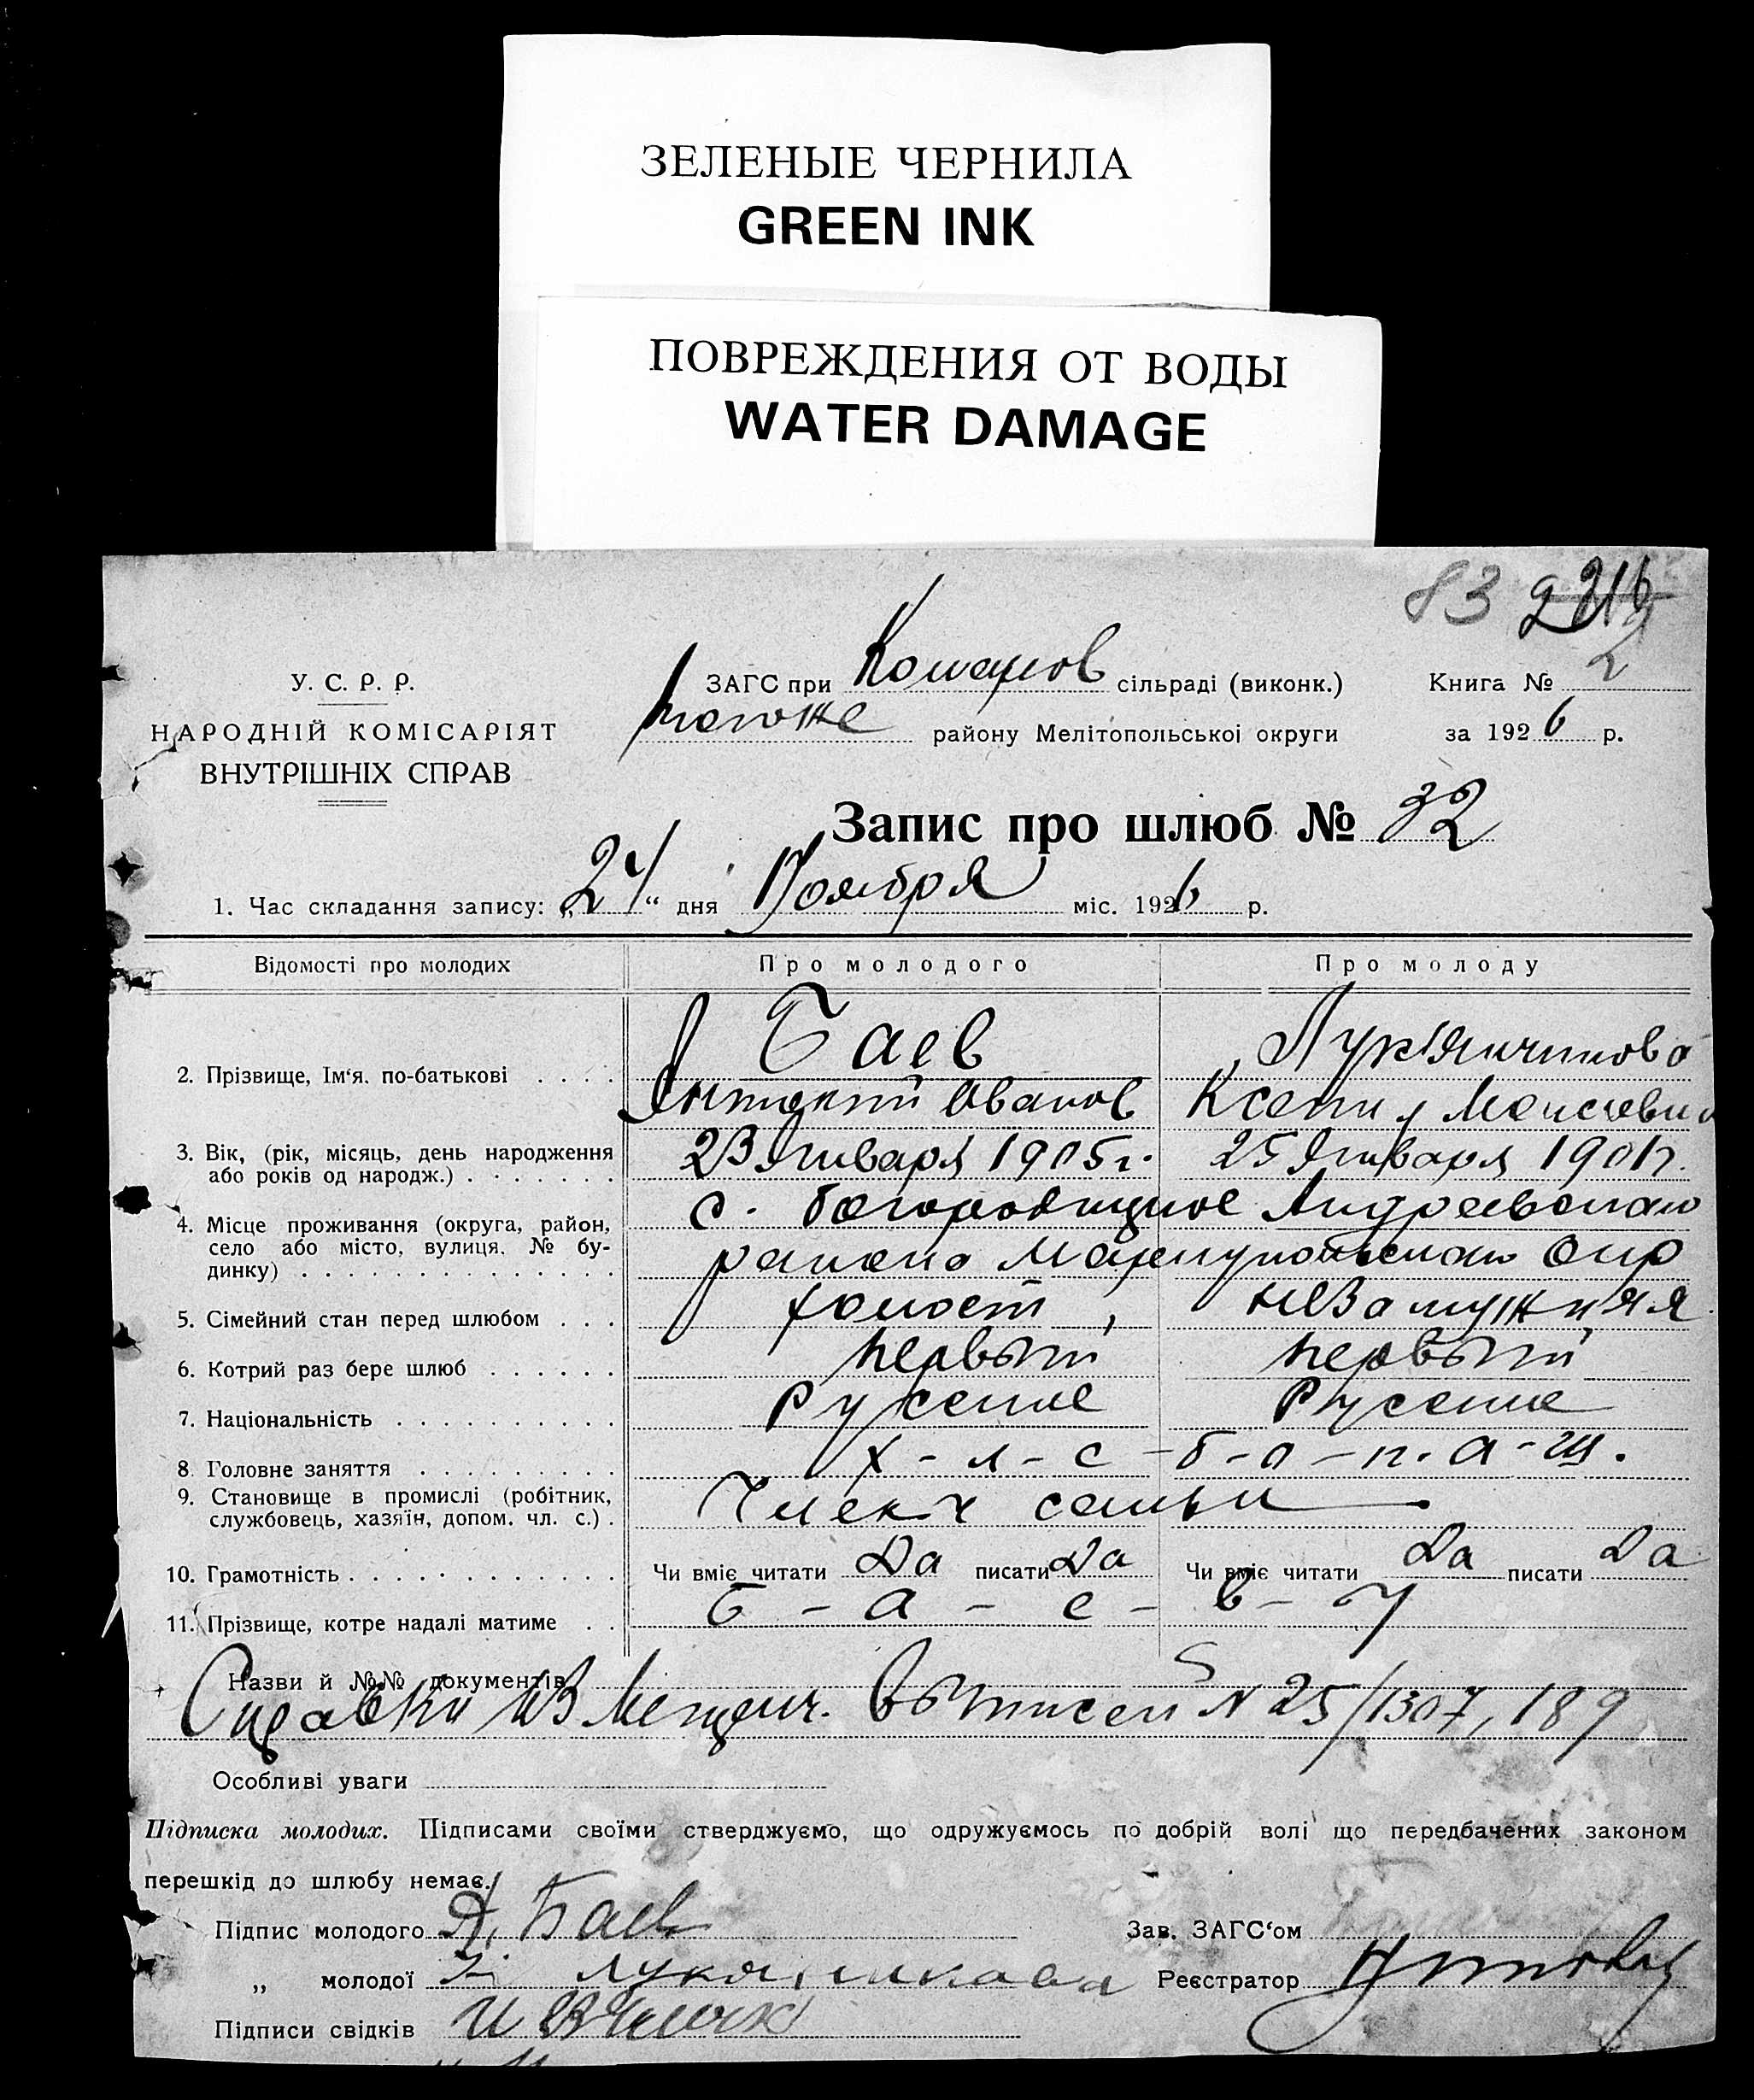 ЗЕЛЕНЫЕ ЧЕРНИЛА
GREEN INK
ПОВРЕЖДЕНИЯ ОТ ВОДЫ
WATER DAMAGE
83
У. С. Р. Р.
НАРОДНІЙ КОМІСАРІЯТ
ВНУТРІШНІХ СПРАВ
ЗАГС при сільраді (виконк.)
району Мелітопольської округи
Книга № 2
за 1926 р.
Запис про шлюб № 32
1. Час складання запису: „24“ дня Ноября міс. 1926 р.
Відомості про молодих Про молодого Про молоду
2. Прізвище, Ім‘я, по-батькові . . . . Баев
Иванов Ксения
3. Вік, (рік, місяць, день народження
або років од народж.) . . . . . . . 23 Января 1905 г. 25 Января 1901 г.
4. Місце проживання (округа, район,
село або місто, вулиця, № бу-
динку) . . . . . . . . . . . . . . с. Андреевского
района Мариупольского Окр
5. Сімейний стан перед шлюбом . . . холост, незамужняя
6. Котрий раз бере шлюб . . . . . . первый первый
7. Національність . . . . . . . . . . Русские Русские
8. Головне заняття . . . . . . . . . х-л-е-б-о-п-а-ш.
9. Становище в промислі (робітник,
службовець, хазяїн, допом. чл. с.) . Члены семьи
10. Грамотність . . . . . . . . . . . . Чи вміє читати Да писати Да Чи вміє читати Да писати Да
11. Прізвище, котре надалі матиме . . Б - а - е - в - ы
Назви й №№ документів
Справки из выписей N 25/1307, 189
Особливі уваги
Підписка молодих. Підписами своїми стверджуємо, що одружуємось по добрій волі що передбачених законом
перешкід до шлюбу немає.
Підпис молодого А. Баев
Зав. ЗАГС‘ом
„ молодої
Реєстратор
Підписи свідків